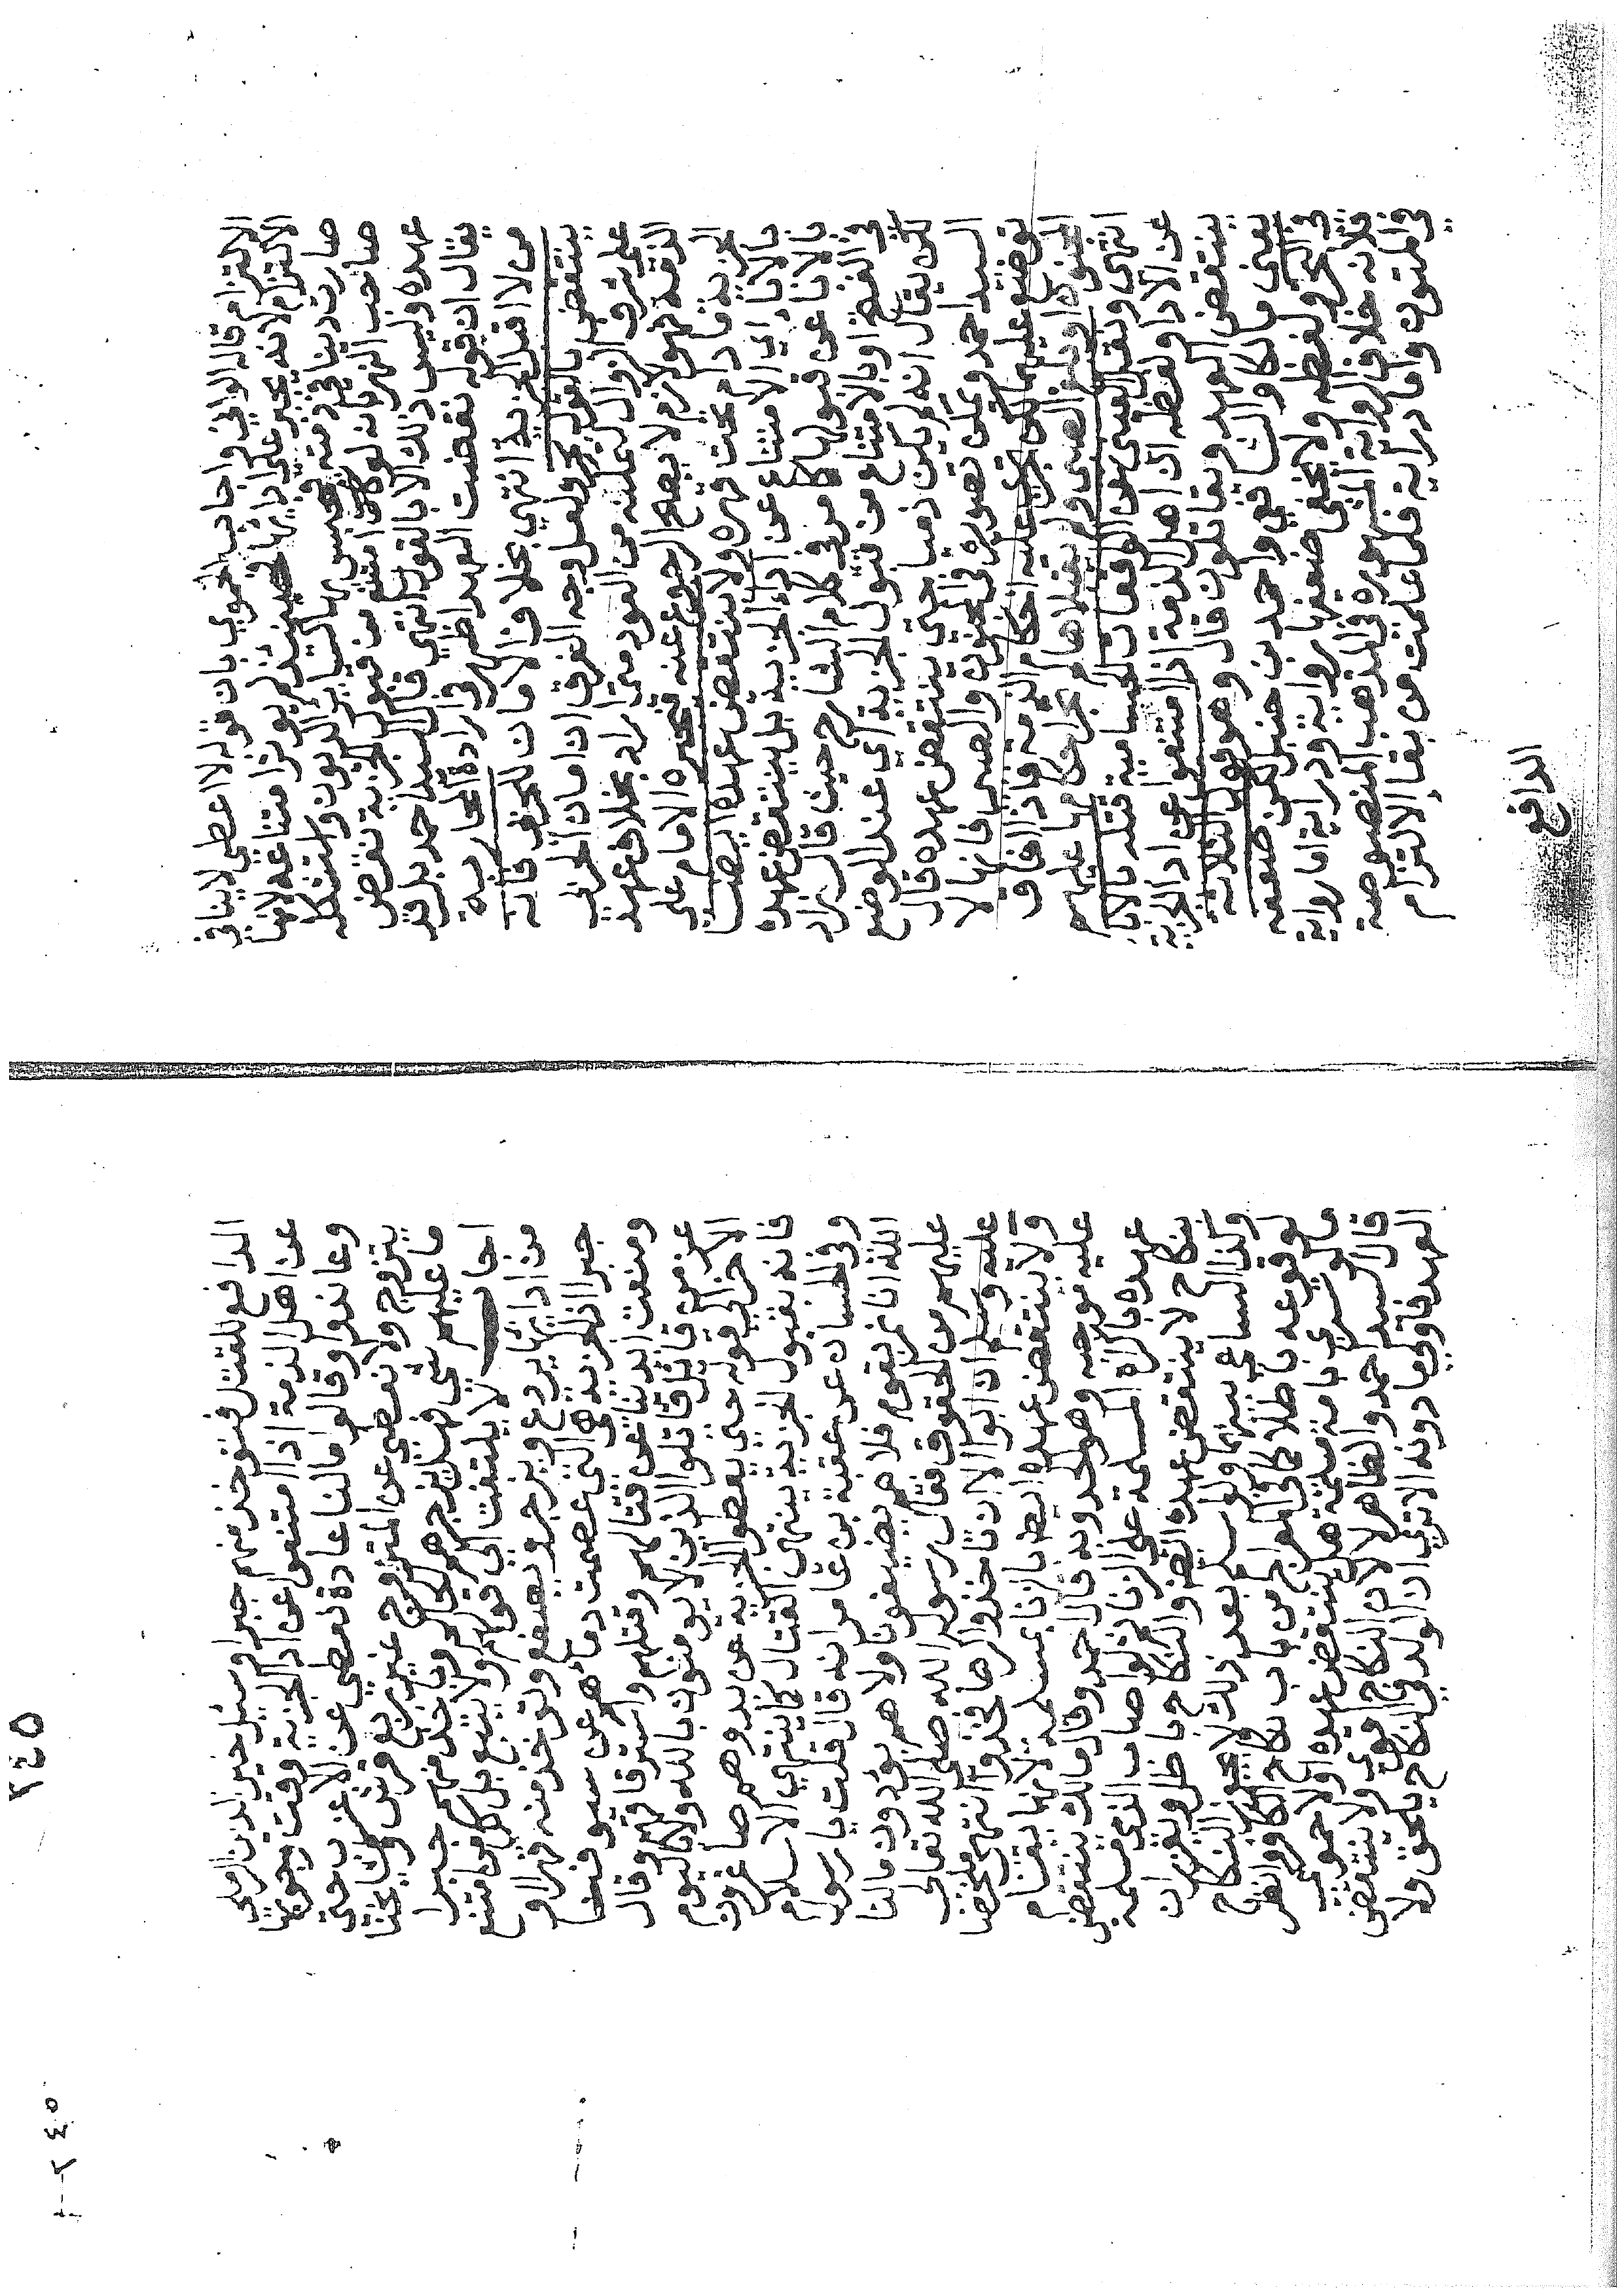 الالتزام قاله الواني واجاب الحموي بان قوله لا اعطي لا ينافي
الالتزام لانه يجبر على ادائها فحينئذ لم يوثر امتناعه لانها
صارت دينا في ذمته فيحبس بها كسائر الديون واستشكله
صاحب النهر بانه لو امتنع من قبول الجزية نقض
عهده وليس ذلك الا بالقول انتهى قال السيد احمد بل قد
يقال ان قوله نقضت العهد اظهر في ارادة المحاربة
من لا اقبل الجزية انتهى بخلاف الامان للحربي فانه
ينتقض بالقول بحر ولعل وجه الفرق ان امان الحربي
على شرف الزوال لتمكنه من العود متى اراد بخلاف عهد
الذمة فهو لازم لا يصح الرجوع عنه فيجبره الامام على
الجزية ما دام تحت قهره ولا ينتقض عهده ايضا
بالاباء اي الامتناع عن اداء الجزية بل ينتقض عهده
بالاباء عن قبولها كما مر في كلام الشارح حيث قال وزاد
في الفتح او بالامتناع من قبول الجزية اي عند الوضع
لكن يقال انه لم يكن ذميا حتى ينتقض عهده قال
السيد احمد ويمكن تصويره في المجنون والصبي فانها لا
توضع عليهما لكن تجري عليه احكام الذمة فاذا افاق
المجنون او بلغ الصبي ولم يقبلاها لم تجر احكامها عليهم
انتهى ونقل العيني عن الواقعات الحسامية قتله بالابا
عن الاداء ولفظه ان اهل الذمة اذا امتنعوا عن اداء الجزية
ينتقض العهد ويقاتلون قال وهو قول الثلاثة
يعني مالكا والشافعي واحمد بن حنبل لكن ضعفه
في البحر ولفظه ولا يخفى ضعفها رواية ودراية اما رواية
فلانه خلاف الرواية المشهورة في المذهب المنصوصة
في المتون واما دراية فلما علمت من بقاء الالتزام
الدافع
٢٤٥
الدافع للقتل فتوخذ منهم جبرا وسئل خير الدين الرملي
عن اهل الذمة اذا امتنعوا عن اداء الجزية وقت وجوبها
وعاندوا وقالوا مالنا عادة نعطي عن الاعزب حتى
يتزوج ولا نعطي عن المتزوج غير ربع قرش وتشاححنا
ما عليهم شي فهل يزجرهم الحاكم وياخذ منهم جبرا
اجاب لا يلتفت الى قولهم ولا يتبع بل كل من امتنع
من ادائها يردع ويزجر ويصفع وتوخذ منه قهرا و
جبرا اذ الجزية هي التي عصمت دماهم عن سيوفنا
ومنعت ايدينا عن قتالهم وقتلهم واسترقاقهم وقال
عز من قائل قاتلوا الذين لا يومنون بالله ولا باليوم
الاخر الى قوله حتى يعطوا الجزية عن يد وهم صاغرون
فانه بقبول الجزية ينتهي القتال كما ينتهي بالاسلام
وفي الحسان عن عقبة بن عامر انه قال قلت يا رسول
الله انا نمر بقوم فلا هم يضيفونا ولا هم يودون مالنا
عليهم من الحقوق فقال رسول الله صلى الله تعالى
عليه وسلم ان ابوا الا ان تاخذوا كرها فخذوا انتهى ملخصا
ولا ينتقض عهده ايضا بالزنا بمسلمة لانها يقام
عليه موجبه وهو الحد وبه قال احمد وقال مالك ينتقض
عهده باكراه المسلمة على الزنا ولو اصاب الذمي مسلمة
بنكاح لا ينتقض عهده ايضا والنكاح باطل ويعزران
وكذا الساعي بينهما ولو اسلم بعد ذلك لا يجوز النكاح
لوقوعه باطلا كما في المعراج من باب نكاح الكافر وانظر
ما لو تسرى بامة مسلمة هل ينتقض عهده او لا حموي
قال السيد احمد والظاهر لا لان النكاح اقوى ولا ينتقض
العهد فاولى ما دونه الا ترى ان الولد في النكاح يلحق ولا
٢٤٥